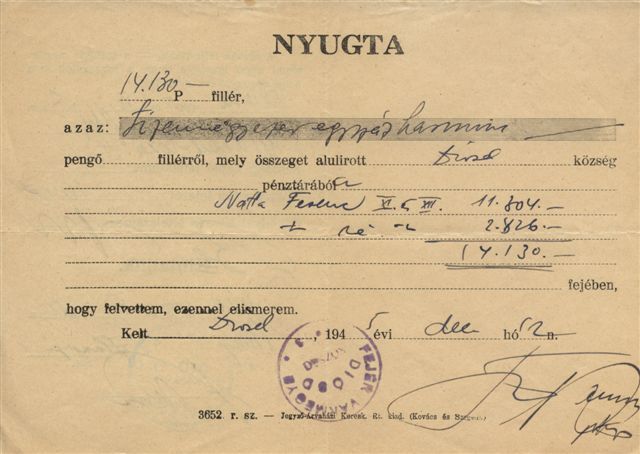 NYUGTA
14.130 — P fillér,
azaz: Tizennégyezeregyszázharminc —
pengő fillérről, mely összeget alulirott Diósd község
pénztárából
Ferenc XI. XII. 11.804.—
2.826.—
14.130.—
fejében,
hogy felvettem, ezennel elismerem.
Kelt Diósd, 1945 évi dec hó n.
FEJÉR VÁRMEGYE DIÓSD KÖZSÉG
3652. r. sz. — Jegyző-Árvaházi Keresk. Rt. kiad. (Kovács és Szegedi)